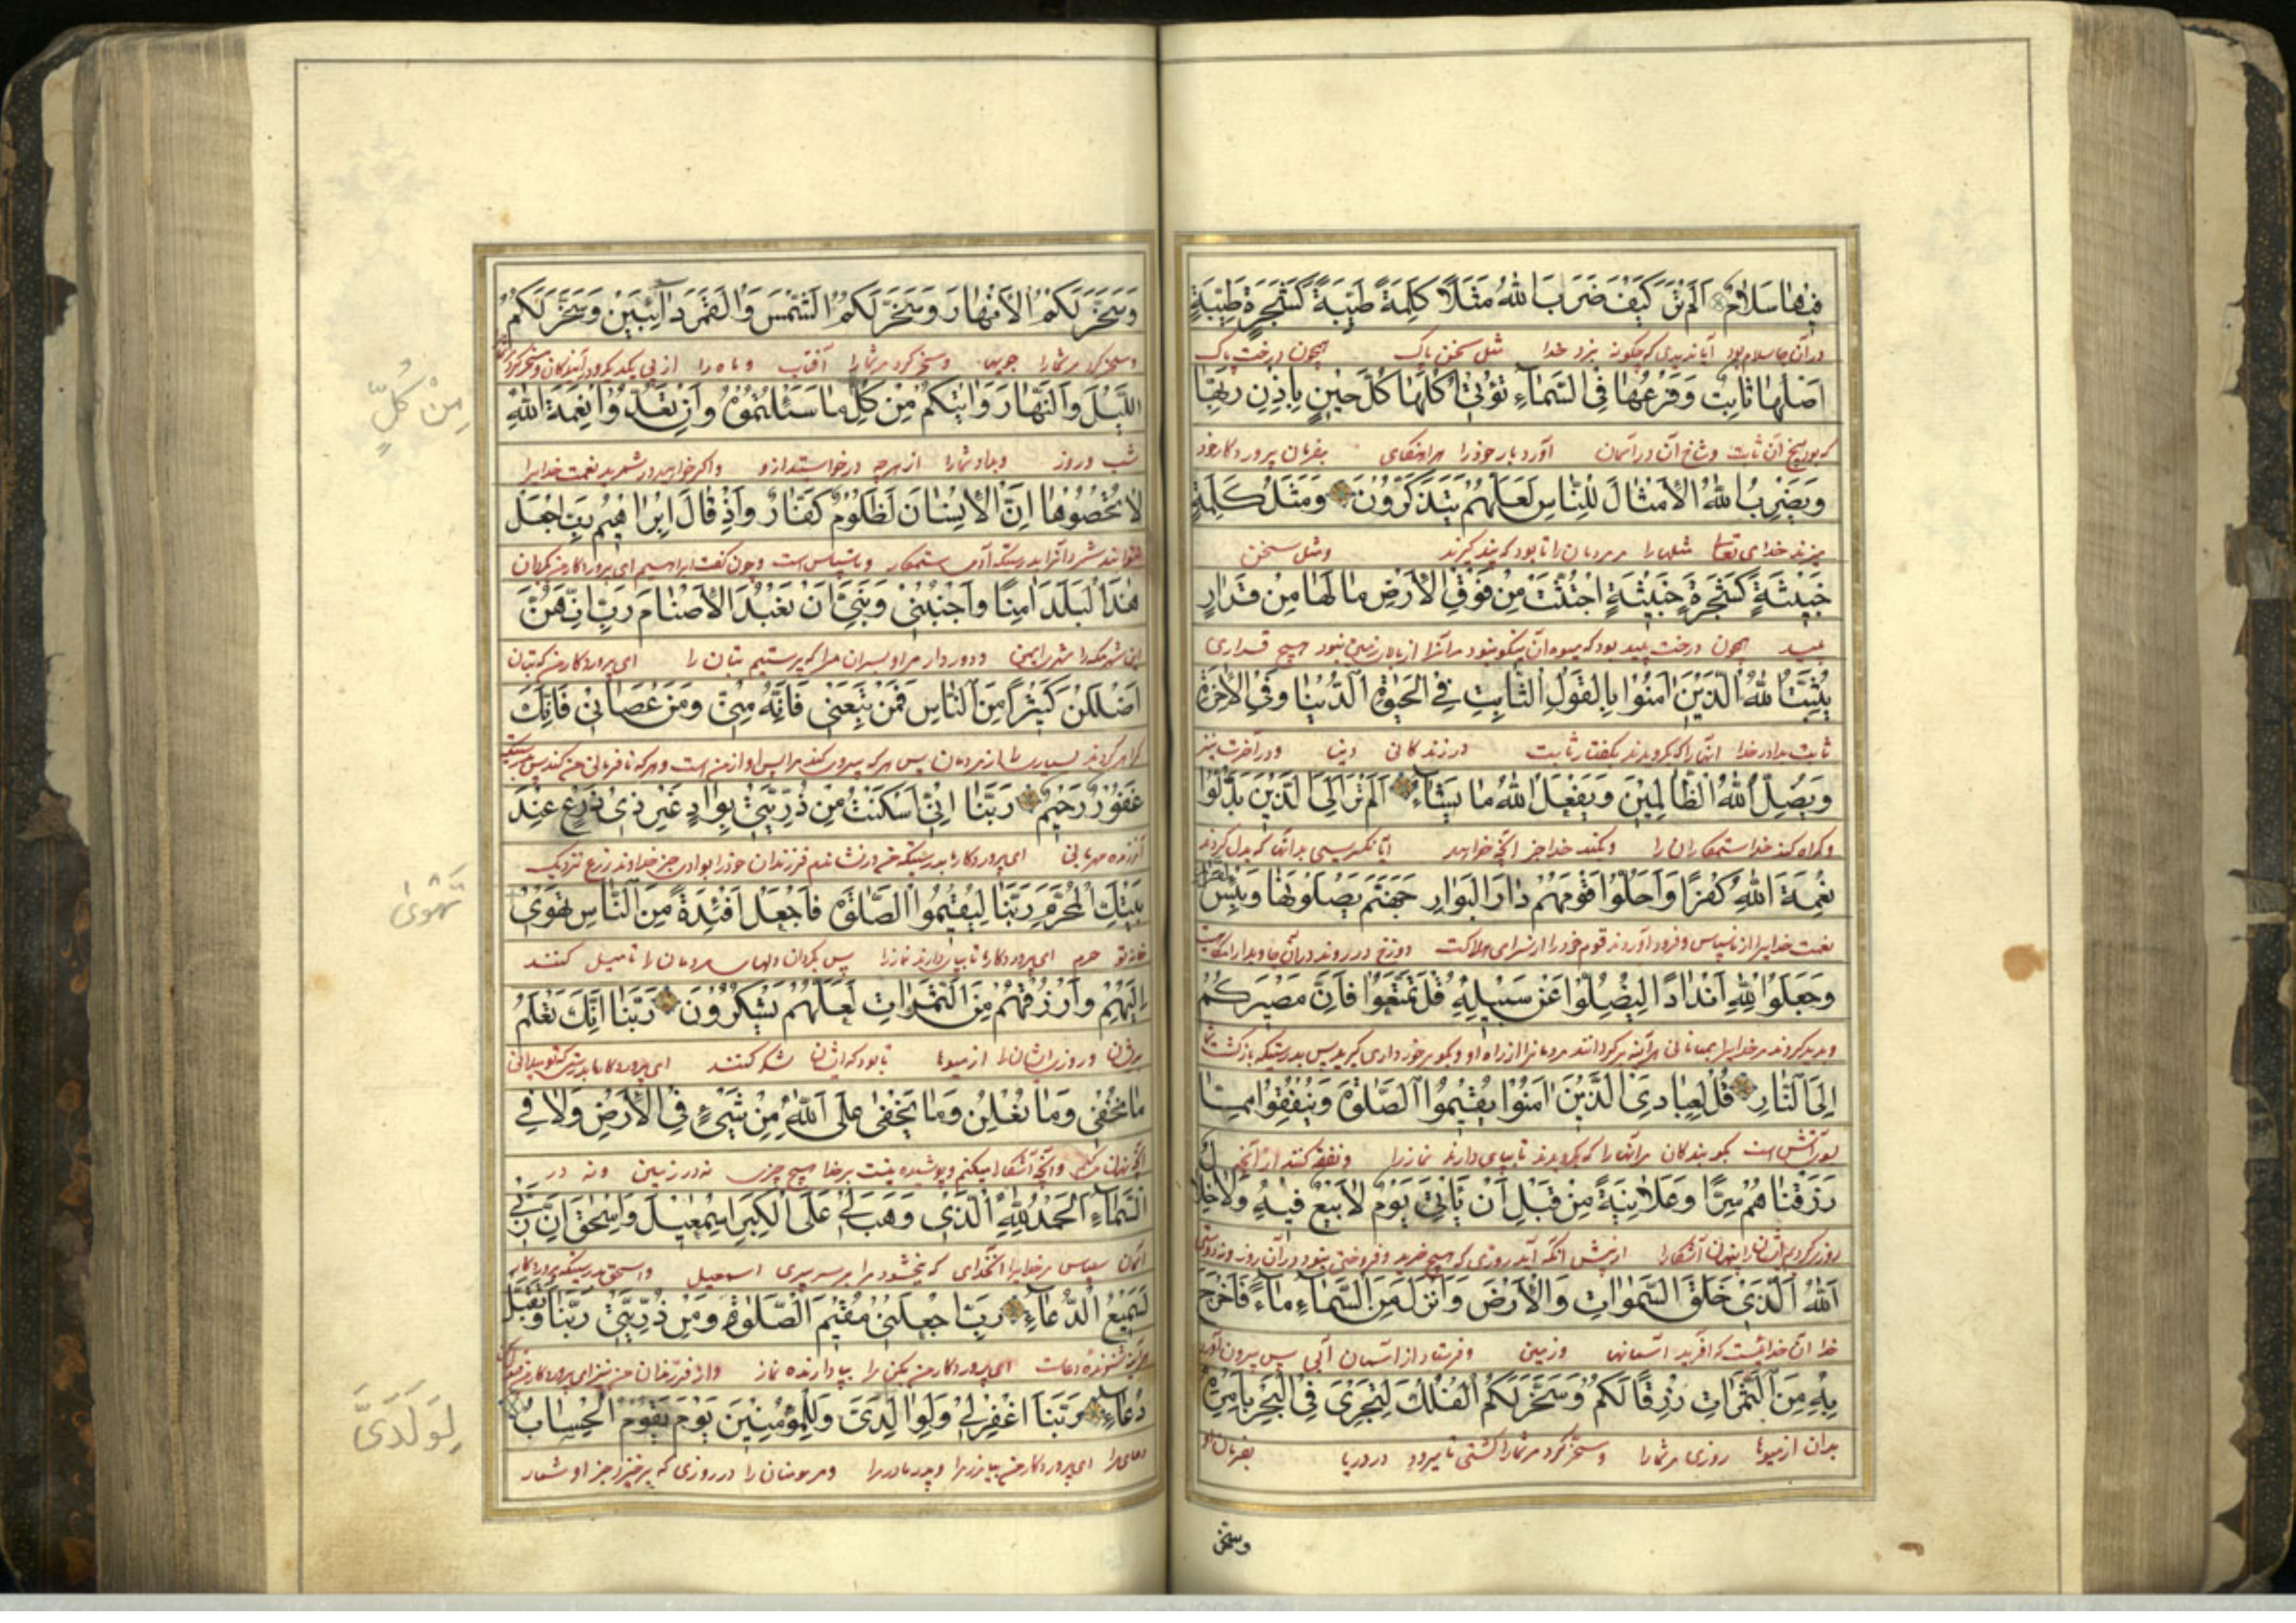 فِيهَا سَلَامٌ اَلَمْ تَرَ كَيْفَ ضَرَبَ اللهُ مَثَلًا كَلِمَةً طَيِّبَةً كَشَجَرَةٍ طَيِّبَةٍ
در آن جا سلام بود آیا ندیدی که چگونه بزد خدا مثل سخن پاک همچون درخت پاک
اَصْلُهَا ثَابِتٌ وَفَرْعُهَا فِي السَّمَاءِ تُؤْتِي اُكُلَهَا كُلَّ حِينٍ بِاِذْنِ رَبِّهَا
که بود بیخ آن ثابت و شاخ آن در آسمان آورد بار خود را بفرمان پروردگار خود
وَيَضْرِبُ اللهُ الْاَمْثَالَ لِلنَّاسِ لَعَلَّهُمْ يَتَذَكَّرُونَ وَمَثَلُ كَلِمَةٍ
میزند خدای تعالی مثلها را مر مردمان را تا بود که پند گیرند و مثل سخن
خَبِيثَةٍ كَشَجَرَةٍ خَبِيثَةٍ اجْتُثَّتْ مِنْ فَوْقِ الْاَرْضِ مَا لَهَا مِنْ قَرَارٍ
پلید همچون درخت پلید بود که میوه آن نیکو نبود نبود هیچ قراری
يُثَبِّتُ اللهُ الَّذِينَ اٰمَنُوا بِالْقَوْلِ الثَّابِتِ فِي الْحَيٰوةِ الدُّنْيَا وَفِي الْاٰخِرَةِ
ثابت بدارد خدا آنها را که بگرویدند بگفتار ثابت در زندگانی دنیا و در آخرت نیز
وَيُضِلُّ اللهُ الظَّالِمِينَ وَيَفْعَلُ اللهُ مَا يَشَاءُ اَلَمْ تَرَ اِلَى الَّذِينَ بَدَّلُوا
و گمراه کند خدا ستمکاران را و بکند خدا آنچه خواهد آیا ننگریسی بدانها که بدل کردند
نِعْمَةَ اللهِ كُفْرًا وَاَحَلُّوا قَوْمَهُمْ دَارَ الْبَوَارِ جَهَنَّمَ يَصْلَوْنَهَا وَبِئْسَ الْقَرَارُ
نعمت خدایرا از ناسپاسی و فرود آوردند قوم خود را سرای هلاکت دوزخ در روند در آن
وَجَعَلُوا لِلّٰهِ اَنْدَادًا لِيُضِلُّوا عَنْ سَبِيلِهِ قُلْ تَمَتَّعُوا فَاِنَّ مَصِيرَكُمْ
و بدید کردند مر خدایرا از راه او و بگو برخورداری گیرید پس بدرستیکه بازگشت شما
اِلَى النَّارِ قُلْ لِعِبَادِيَ الَّذِينَ اٰمَنُوا يُقِيمُوا الصَّلٰوةَ وَيُنْفِقُوا مِمَّا
آتش است بگو بندگان مرا آنها را که بگرویدند تا بپای دارند نماز را و نفقه کنند از آنچه
رَزَقْنَاهُمْ سِرًّا وَعَلَانِيَةً مِنْ قَبْلِ اَنْ يَأْتِيَ يَوْمٌ لَا بَيْعٌ فِيهِ وَلَا خِلَالٌ
روزی کردیم ایشان را پنهان آشکارا از پیش آنکه آید روزی که هیچ خرید و فروختی نبود در آن روز و نه دوستی
اَللهُ الَّذِي خَلَقَ السَّمٰوَاتِ وَالْاَرْضَ وَاَنْزَلَ مِنَ السَّمَاءِ مَاءً فَاَخْرَجَ
خدا آن خدائیست که آفرید آسمانها و زمین و فرستاد از آسمان آبی پس بیرون آورد
بِهِ مِنَ الثَّمَرَاتِ رِزْقًا لَكُمْ وَسَخَّرَ لَكُمُ الْفُلْكَ لِتَجْرِيَ فِي الْبَحْرِ بِاَمْرِهِ
بدان از میوها روزی مر شما را و مسخر کرد مر شما را کشتی تا برود در دریا بفرمان او
وسخر
وَسَخَّرَ لَكُمُ الْاَنْهَارَ وَسَخَّرَ لَكُمُ الشَّمْسَ وَالْقَمَرَ دَائِبَيْنِ وَسَخَّرَ لَكُمُ
و مسخر کرد مر شما را جویها و مسخر کرد مر شما را آفتاب و ماه را از پی یکدیگر
الَّيْلَ وَالنَّهَارَ وَاٰتٰيكُمْ مِنْ كُلِّ مَا سَئَلْتُمُوهُ وَاِنْ تَعُدُّوا نِعْمَةَ اللهِ
شب و روز و بداد شما را از هرچه درخواستید ازو و اگر خواهید در شمرید نعمت خدایرا
مِنْ كُلٍّ
لَا تُحْصُوهَا اِنَّ الْاِنْسَانَ لَظَلُومٌ كَفَّارٌ وَاِذْ قَالَ اِبْرَاهِيمُ رَبِّ اجْعَلْ
نتوانید شمرد آنرا بدرستیکه آدمی ستمکار و ناسپاس است و چون گفت ابراهیم ای پروردگار من بگردان
هٰذَا الْبَلَدَ اٰمِنًا وَاجْنُبْنِي وَبَنِيَّ اَنْ نَعْبُدَ الْاَصْنَامَ رَبِّ اِنَّهُنَّ
این شهر مکه را شهر ایمن و دور دار مرا و پسران مرا که پرستیم بتان را ای پروردگار من که بتان
اَضْلَلْنَ كَثِيرًا مِنَ النَّاسِ فَمَنْ تَبِعَنِي فَاِنَّهُ مِنِّي وَمَنْ عَصَانِي فَاِنَّكَ
گمراه کردند بسیاری را از مردمان پس هر که پیروی کند مرا پس او از من است و هر که نافرمانی من کند پس بدرستیکه
غَفُورٌ رَحِيمٌ رَبَّنَا اِنِّي اَسْكَنْتُ مِنْ ذُرِّيَّتِي بِوَادٍ غَيْرِ ذِي زَرْعٍ عِنْدَ
آمرزنده مهربانی ای پروردگار ما بدرستیکه من در نشاندم فرزندان خود را بوادی جز خداوند زرع نزدیک
بَيْتِكَ الْمُحَرَّمِ رَبَّنَا لِيُقِيمُوا الصَّلٰوةَ فَاجْعَلْ اَفْئِدَةً مِنَ النَّاسِ تَهْوِي
خانه تو حرم ای پروردگار ما تا بپای دارند نماز را پس بگردان دلهای مردمان را تا میل کنند
تَهْوىٰ
اِلَيْهِمْ وَارْزُقْهُمْ مِنَ الثَّمَرَاتِ لَعَلَّهُمْ يَشْكُرُونَ رَبَّنَا اِنَّكَ تَعْلَمُ
و روزی ایشان را از میوها تا بود که ایشان شکر کنند ای پروردگار ما بدرستیکه تو میدانی
مَا نُخْفِي وَمَا نُعْلِنُ وَمَا يَخْفٰى عَلَى اللهِ مِنْ شَيْءٍ فِي الْاَرْضِ وَلَا فِي
آنچه پنهان و آنچه آشکارا میکنم و پوشیده نیست بر خدا هیچ چیزی نه در زمین و نه در
السَّمَاءِ اَلْحَمْدُ لِلّٰهِ الَّذِي وَهَبَ لِي عَلَى الْكِبَرِ اِسْمٰعِيلَ وَاِسْحٰقَ اِنَّ رَبِّي
آسمان سپاس مر خدایرا آنخدای که بخشود مرا بر سر پیری اسمعیل و اسحق بدرستیکه پروردگار
لَسَمِيعُ الدُّعَاءِ رَبِّ اجْعَلْنِي مُقِيمَ الصَّلٰوةِ وَمِنْ ذُرِّيَّتِي رَبَّنَا وَتَقَبَّلْ
شنونده دعاست ای پروردگار من بکن مرا بپادارنده نماز و از فرزندان من نیز ای پروردگار من
دُعَاءِ رَبَّنَا اغْفِرْ لِي وَلِوَالِدَيَّ وَلِلْمُؤْمِنِينَ يَوْمَ يَقُومُ الْحِسَابُ
دعای مرا ای پروردگار من بیامرز مرا و پدر مادر مرا و مر مومنان را در روزی که برخیزد شمار
لِوَلَدَىَّ